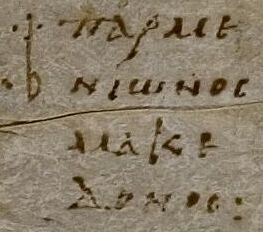 παρμε
νιωνος
μακε
δονος: